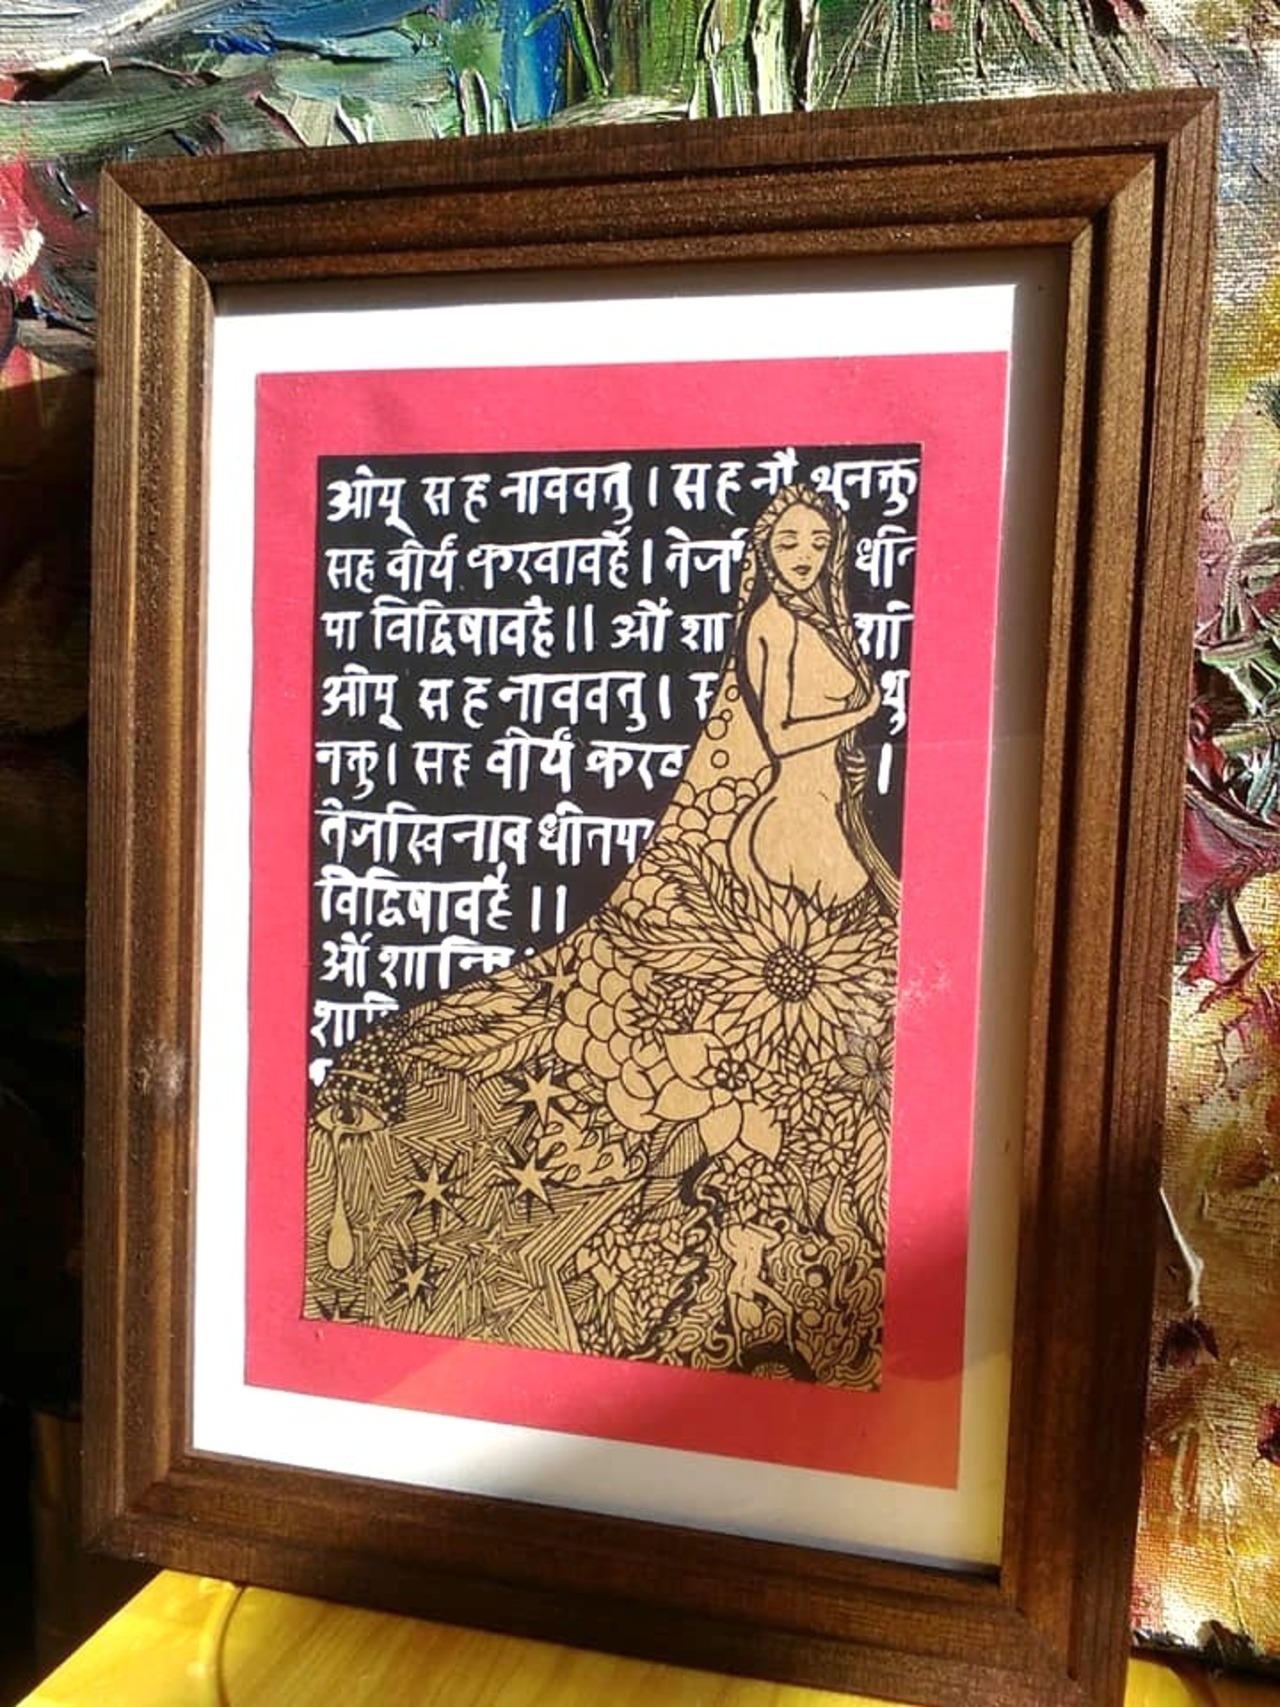 ओम् सह नाववतु । सह नौ भुनक्तु
सह वीर्यं करवावहै । तेज धीत
पा विद्विषावहै ॥ ओं शा शा
ओम् सह नाववतु । स भु
नक्तु । सह वीर्यं करव ।
तेजस्विनाव धीतमा
विद्विषावहै ॥
ओं शान्तिः
शान्ति